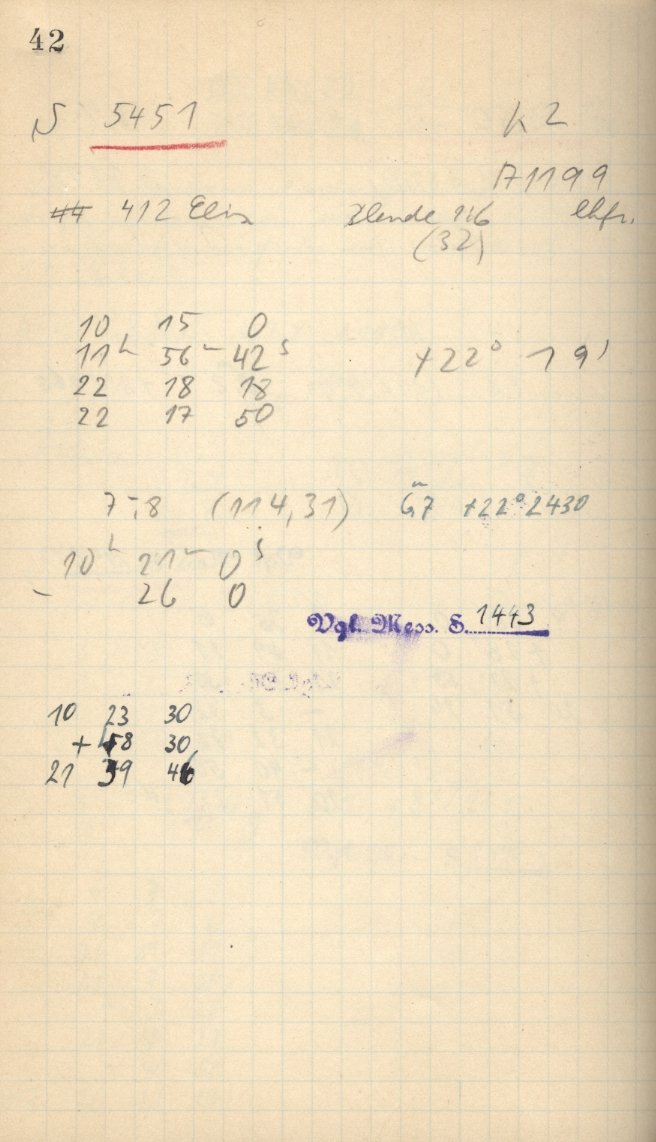 42
5451 k 2
A1199
## 412 Elis Blende 116
(32)
10 15 0
11h 56m 42s +22° 19'
22 18 18
22 17 50
7-8 (114,31) 6,7 +22° 2430
10h 21m 0s
- 26 0
Vgl. Mess. S. 1443
10 23 30
+ 58 30
21 39 46